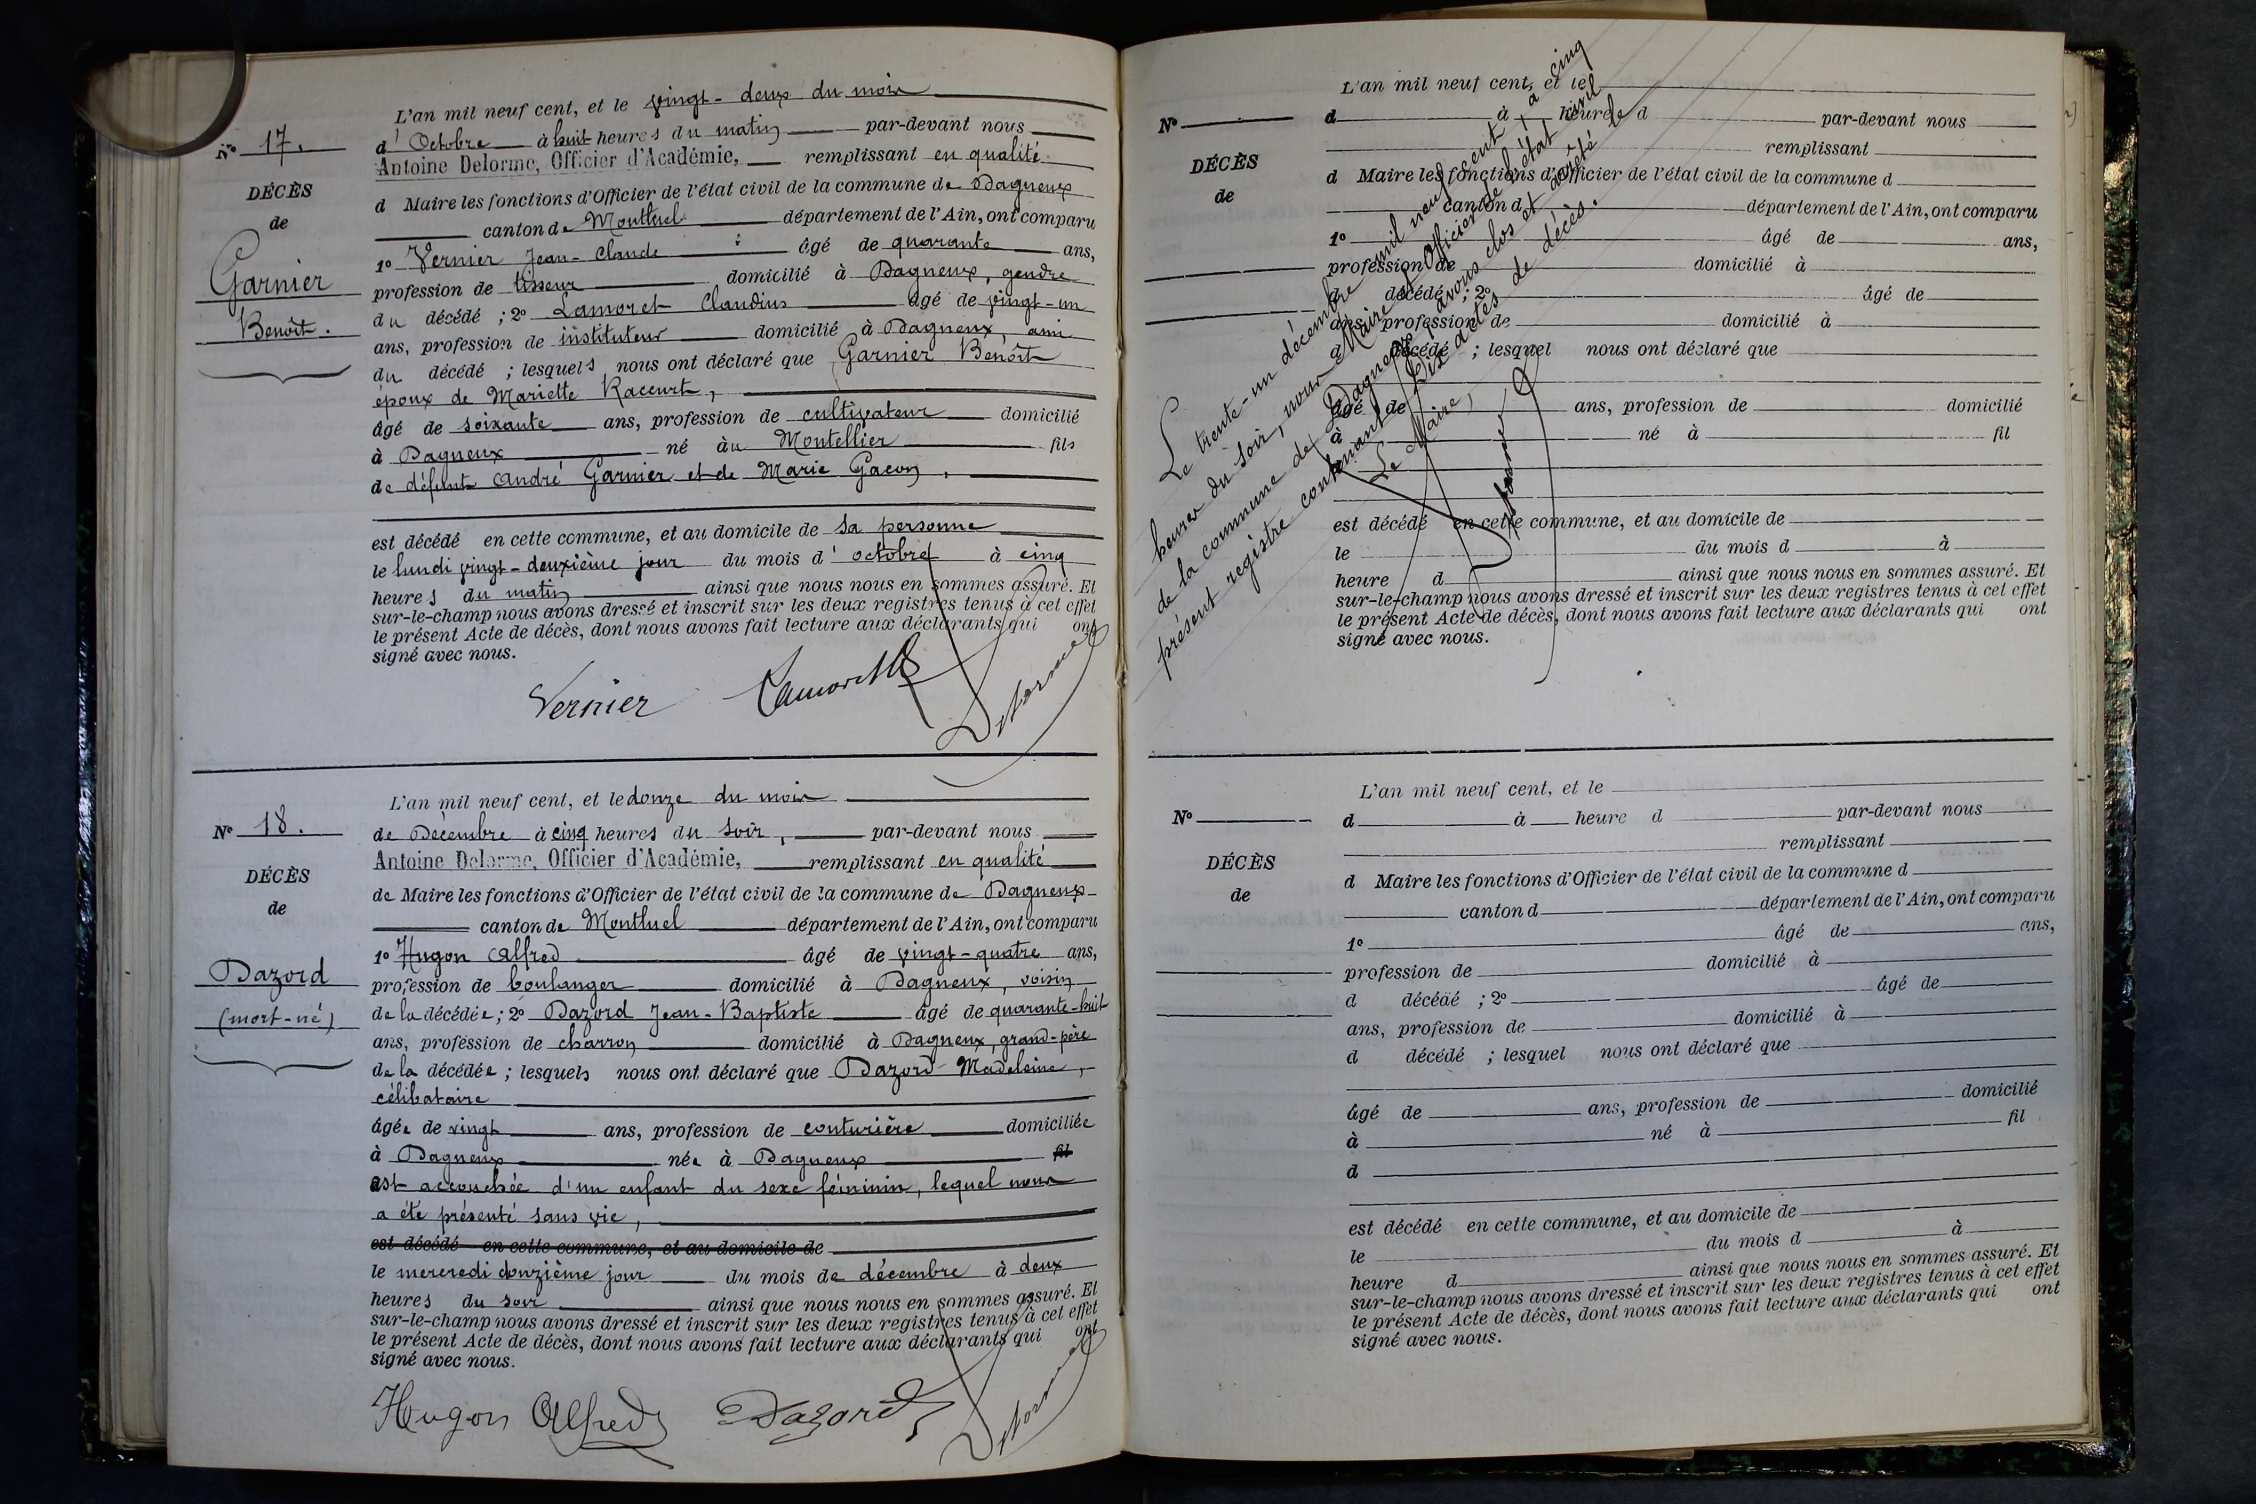 L'an mil neuf cent, et le vingt-deux du mois
N° 17. d'Octobre à huit heures du matin par-devant nous
Antoine Delorme, Officier d'Académie, remplissant en qualité
DÉCÈS
de
Garnier
Benoît.
d Maire les fonctions d'Officier de l'état civil de la commune de Dagneux
canton de Montluel département de l'Ain, ont comparu
1° Vernier Jean-Claude âgé de quarante ans,
profession de tisseur domicilié à Dagneux, gendre
du décédé ; 2° Lamoret Claudius âgé de vingt-un
ans, profession de instituteur domicilié à Dagneux, ami
du décédé ; lesquels nous ont déclaré que Garnier Benoît
époux de Mariette Racurt,
âgé de soixante ans, profession de cultivateur domicilié
à Dagneux né au Montellier fils
de défunts André Garnier et de Marie Gacon,
est décédé en cette commune, et au domicile de sa personne
le lundi vingt-deuxième jour du mois d'octobre à cinq
heures du matin ainsi que nous nous en sommes assuré. Et
sur-le-champ nous avons dressé et inscrit sur les deux registres tenus à cet effet
le présent Acte de décès, dont nous avons fait lecture aux déclarants qui ont
signé avec nous.
Vernier Lamoret Delorme
L'an mil neuf cent, et le douze du mois
N° 18. de Décembre à cinq heures du soir, par-devant nous
Antoine Delorme, Officier d'Académie, remplissant en qualité
DÉCÈS
de
Dazord
(mort-né)
de Maire les fonctions d'Officier de l'état civil de la commune de Dagneux
canton de Montluel département de l'Ain, ont comparu
1° Hugon Alfred âgé de vingt-quatre ans,
profession de boulanger domicilié à Dagneux, voisin
de la décédée ; 2° Dazord Jean-Baptiste âgé de quarante-huit
ans, profession de charron domicilié à Dagneux, grand-père
de la décédée ; lesquels nous ont déclaré que Dazord Madeleine,
célibataire
âgée de vingt ans, profession de couturière domiciliée
à Dagneux née à Dagneux fil
est accouchée d'un enfant du sexe féminin, lequel nous
a été présenté sans vie,
est décédé en cette commune, et au domicile de
le mercredi douzième jour du mois de décembre à deux
heures du soir ainsi que nous nous en sommes assuré. Et
sur-le-champ nous avons dressé et inscrit sur les deux registres tenus à cet effet
le présent Acte de décès, dont nous avons fait lecture aux déclarants qui ont
signé avec nous.
Hugon Alfred Dazord Delorme
L'an mil neuf cent, et le
N° d à heure d par-devant nous
remplissant
DÉCÈS
de
d Maire les fonctions d'Officier de l'état civil de la commune d
canton d département de l'Ain, ont comparu
1° âgé de ans,
profession de domicilié à
d décédé ; 2° âgé de
ans, profession de domicilié à
d décédé ; lesquel nous ont déclaré que
âgé de ans, profession de domicilié
à né à fil
est décédé en cette commune, et au domicile de
le du mois d à
heure d ainsi que nous nous en sommes assuré. Et
sur-le-champ nous avons dressé et inscrit sur les deux registres tenus à cet effet
le présent Acte de décès, dont nous avons fait lecture aux déclarants qui ont
signé avec nous.
Le trente-un décembre mil neuf cent, à cinq
heures du soir, nous Maire et Officier de l'état civil
de la commune de Dagneux, avons clos et arrêté le
présent registre contenant Dix actes de décès.
Le Maire,
Delorme
L'an mil neuf cent, et le
N° d à heure d par-devant nous
remplissant
DÉCÈS
de
d Maire les fonctions d'Officier de l'état civil de la commune d
canton d département de l'Ain, ont comparu
1° âgé de ans,
profession de domicilié à
d décédé ; 2° âgé de
ans, profession de domicilié à
d décédé ; lesquel nous ont déclaré que
âgé de ans, profession de domicilié
à né à fil
d
est décédé en cette commune, et au domicile de
le du mois d à
heure d ainsi que nous nous en sommes assuré. Et
sur-le-champ nous avons dressé et inscrit sur les deux registres tenus à cet effet
le présent Acte de décès, dont nous avons fait lecture aux déclarants qui ont
signé avec nous.